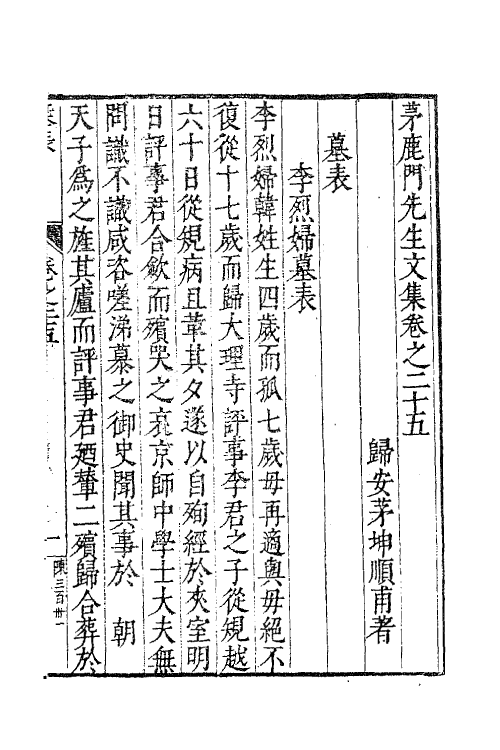 茅鹿門先生文集卷之二十五
歸安茅坤順甫著
墓表
李烈婦墓表
李烈婦韓姓生四歲而孤七歲毋再適輿毋絕不
復從十七歲而歸大理寺評事李君之子從規越
六十日從規病且革其夕遂以自殉經於夾室明
日評事君合歛而殯哭之哀京師中學士大夫無
問識不識咸咨嗟涕慕之御史聞其事於 朝
天子爲之旌其廬而評事君廼輦二殯歸合葬於
卷之二五
一